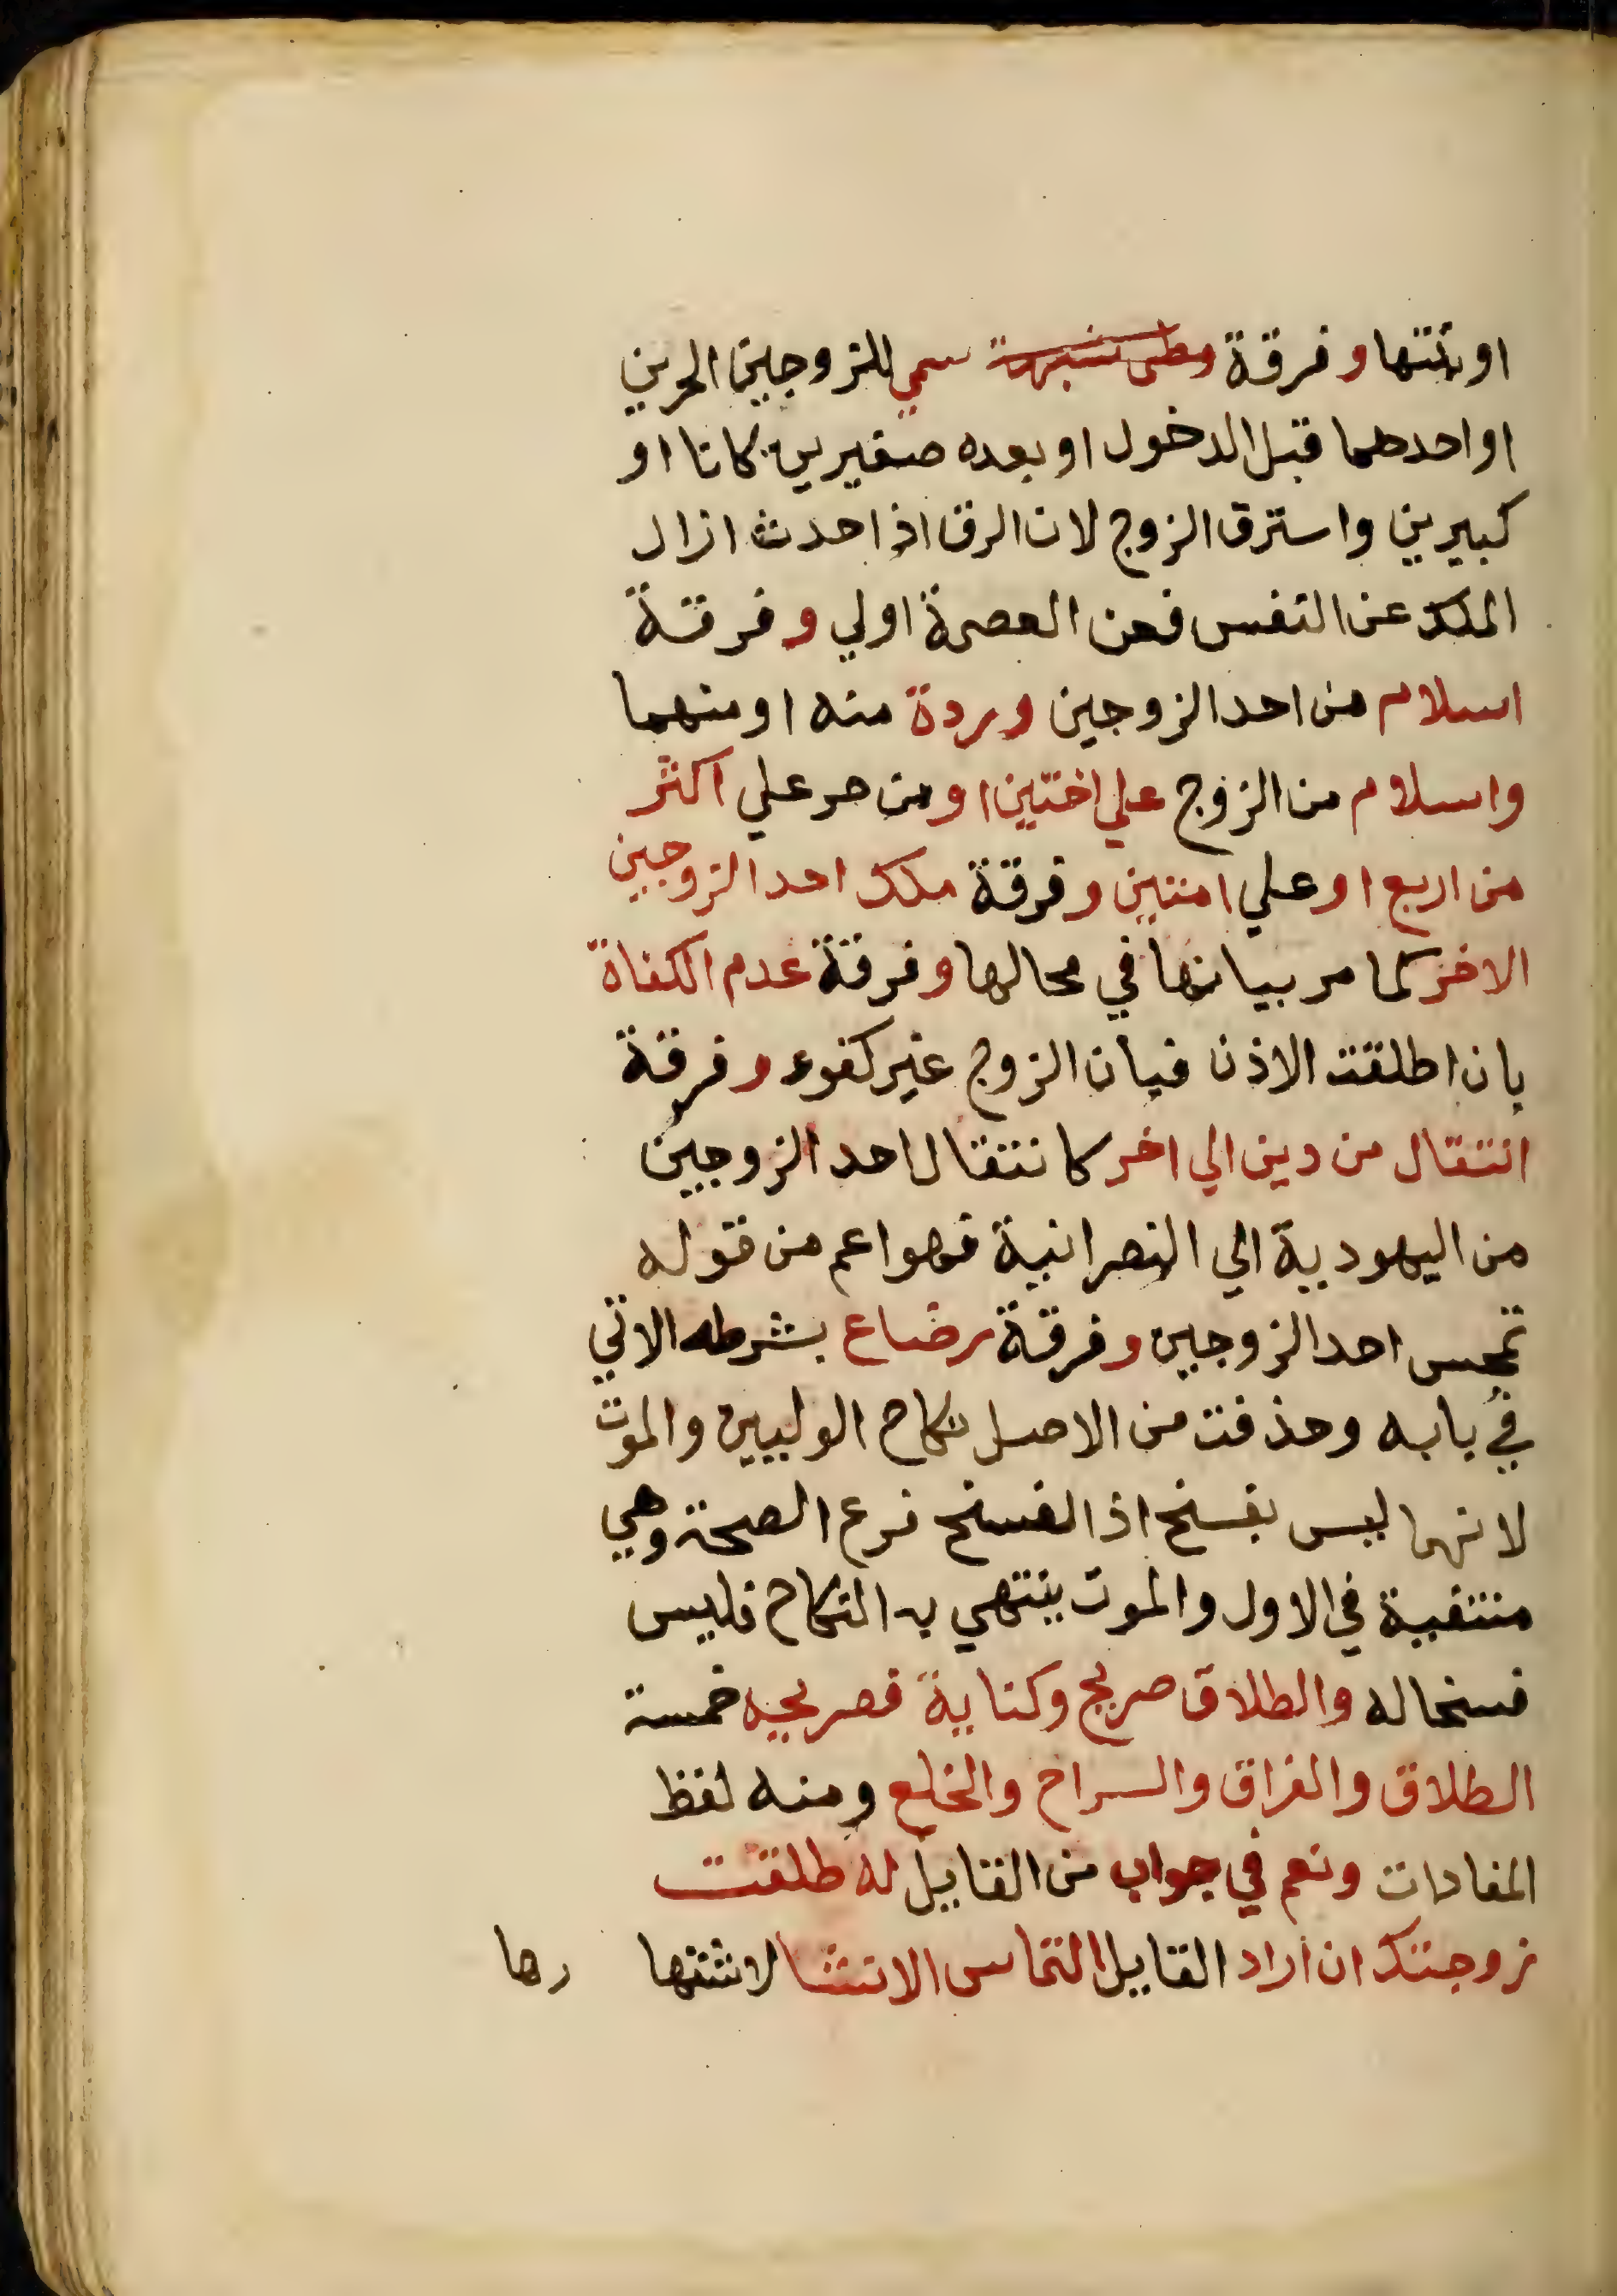 او بنتها وفرقة وطى شبهة سبي للزوجين الحرين
او احدهما قبل الدخول او بعده صغيرين كانا او
كبيرين واسترق الزوج لان الرق اذا حدث ازال
الملك عن النفس فعن العصمة اولي وفرقة
اسلام من احد الزوجين وردة منه او منهما
واسلام من الزوج علي اختين او من حر علي اكثر
من اربع او علي امتين وفرقة ملك احد الزوجين
الاخر كما مر بيانها في محالها وفرقة عدم الكفاة
بان اطلقت الاذن فبان الزوج غير كفوء وفرقة
انتقال من دين الي اخر كانتقال احد الزوجين
من اليهودية الي النصرانية فهو اعم من قوله
تمجس احد الزوجين وفرقة رضاع بشرطه الاتي
في بابه وحذفت من الاصل نكاح الوليين والموت
لانهما ليس بفسخ اذ الفسخ فرع الصحة وهي
منتفية في الاول والموت ينتهي به النكاح فليس
فسخا له والطلاق صريح وكناية فصريحه خمسة
الطلاق والفراق والسراح والخلع ومنه لفظ
المفادات ونعم في جواب من القايل له طلقت
زوجتك ان اراد القايل التماس الانشا لاشتها
رها